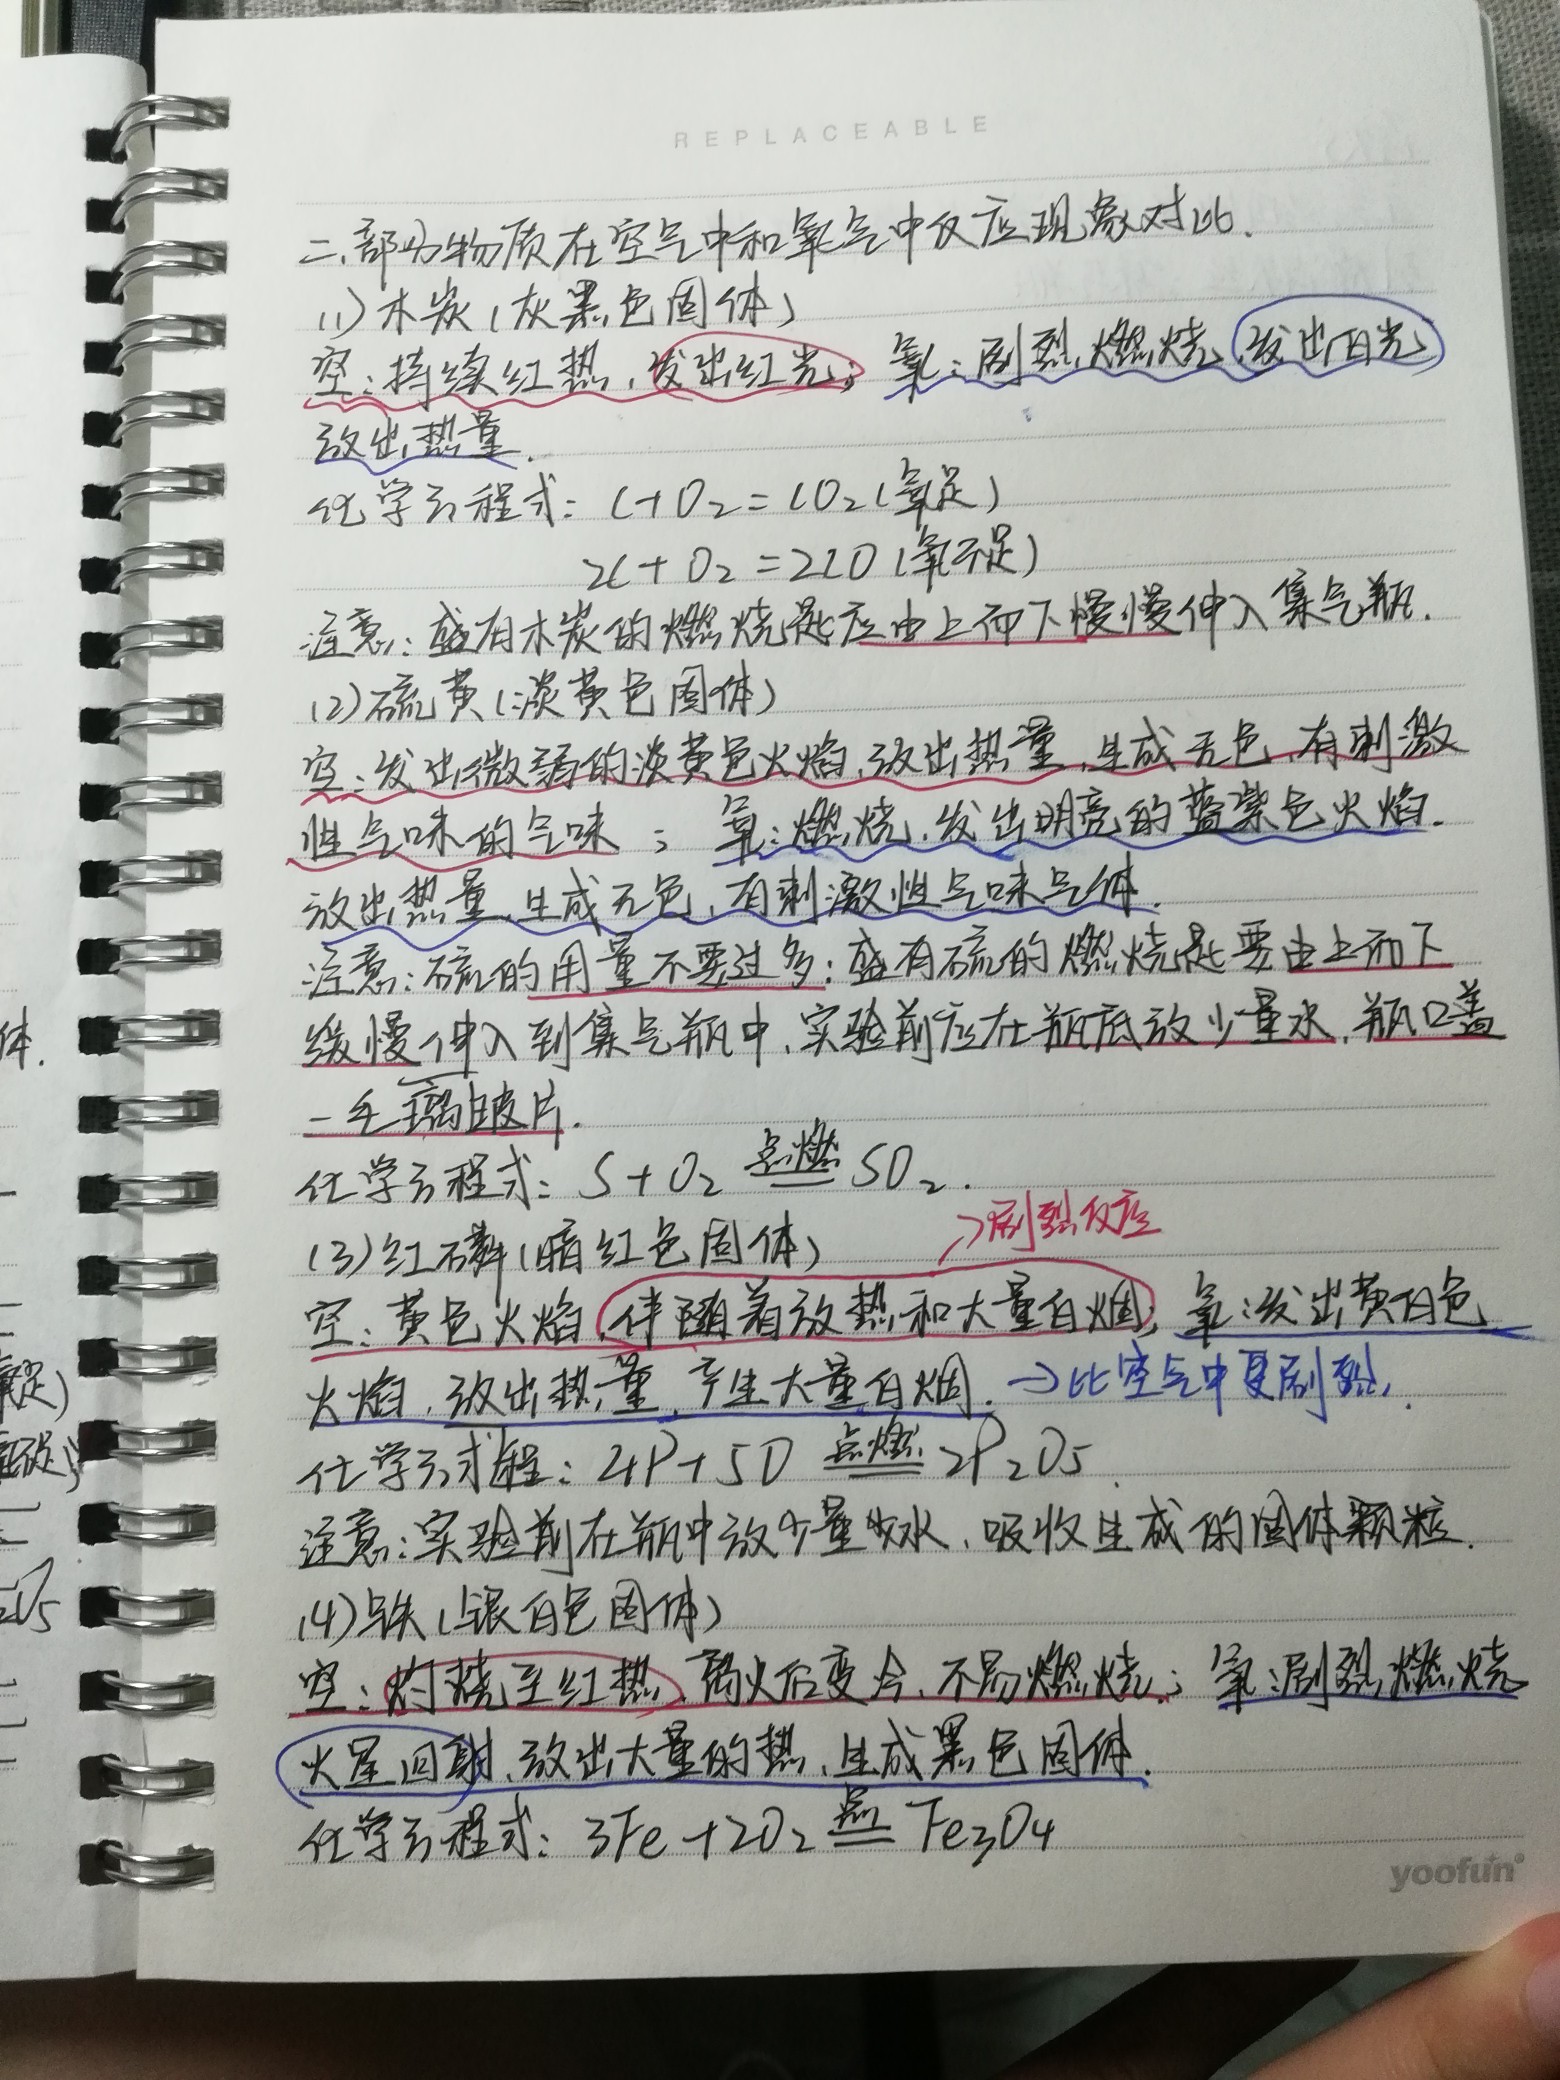 REPLACEABLE
二、部分物质在空气中和氧气中反应现象对比.
(1)木炭(灰黑色固体)
空:持续红热,发出红光; 氧:剧烈燃烧,发出白光
放出热量.
化学方程式: C+O₂=CO₂(氧足)
2C+O₂=2CO(氧不足)
注意:盛有木炭的燃烧匙应由上而下慢慢伸入集气瓶.
(2)硫黄(淡黄色固体)
空:发出微弱的淡黄色火焰,放出热量,生成无色,有刺激
性气味的气味; 氧:燃烧,发出明亮的蓝紫色火焰.
放出热量,生成无色,有刺激性气味气体.
注意:硫的用量不要过多;盛有硫的燃烧匙要由上而下
缓慢伸入到集气瓶中,实验前应在瓶底放少量水,瓶口盖
一毛璃玻片.
化学方程式: S+O₂ 点燃 = SO₂.
→剧烈反应
(3)红磷(暗红色固体)
空:黄色火焰,伴随着放热和大量白烟; 氧:发出黄白色
火焰,放出热量,产生大量白烟. →比空气中更剧烈.
化学方式程: 4P+5O 点燃 = 2P₂O₅.
注意:实验前在瓶中放少量水,吸收生成的固体颗粒.
(4)铁(银白色固体)
空:灼烧至红热,离火后变冷,不易燃烧.; 氧:剧烈燃烧
火星四射,放出大量的热,生成黑色固体.
化学方程式: 3Fe+2O₂ 点燃 = Fe₃O₄
yoofun
体.